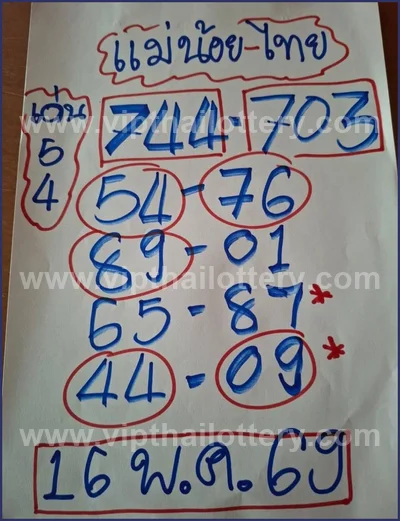 แม่น้อย-ไทย
เด่น
5
4
744-703
54-76
89-01
65-87*
44-09*
16 พ.ค. 69
www.vipthailottery.com
www.vipthailottery.com
www.vipthailottery.com